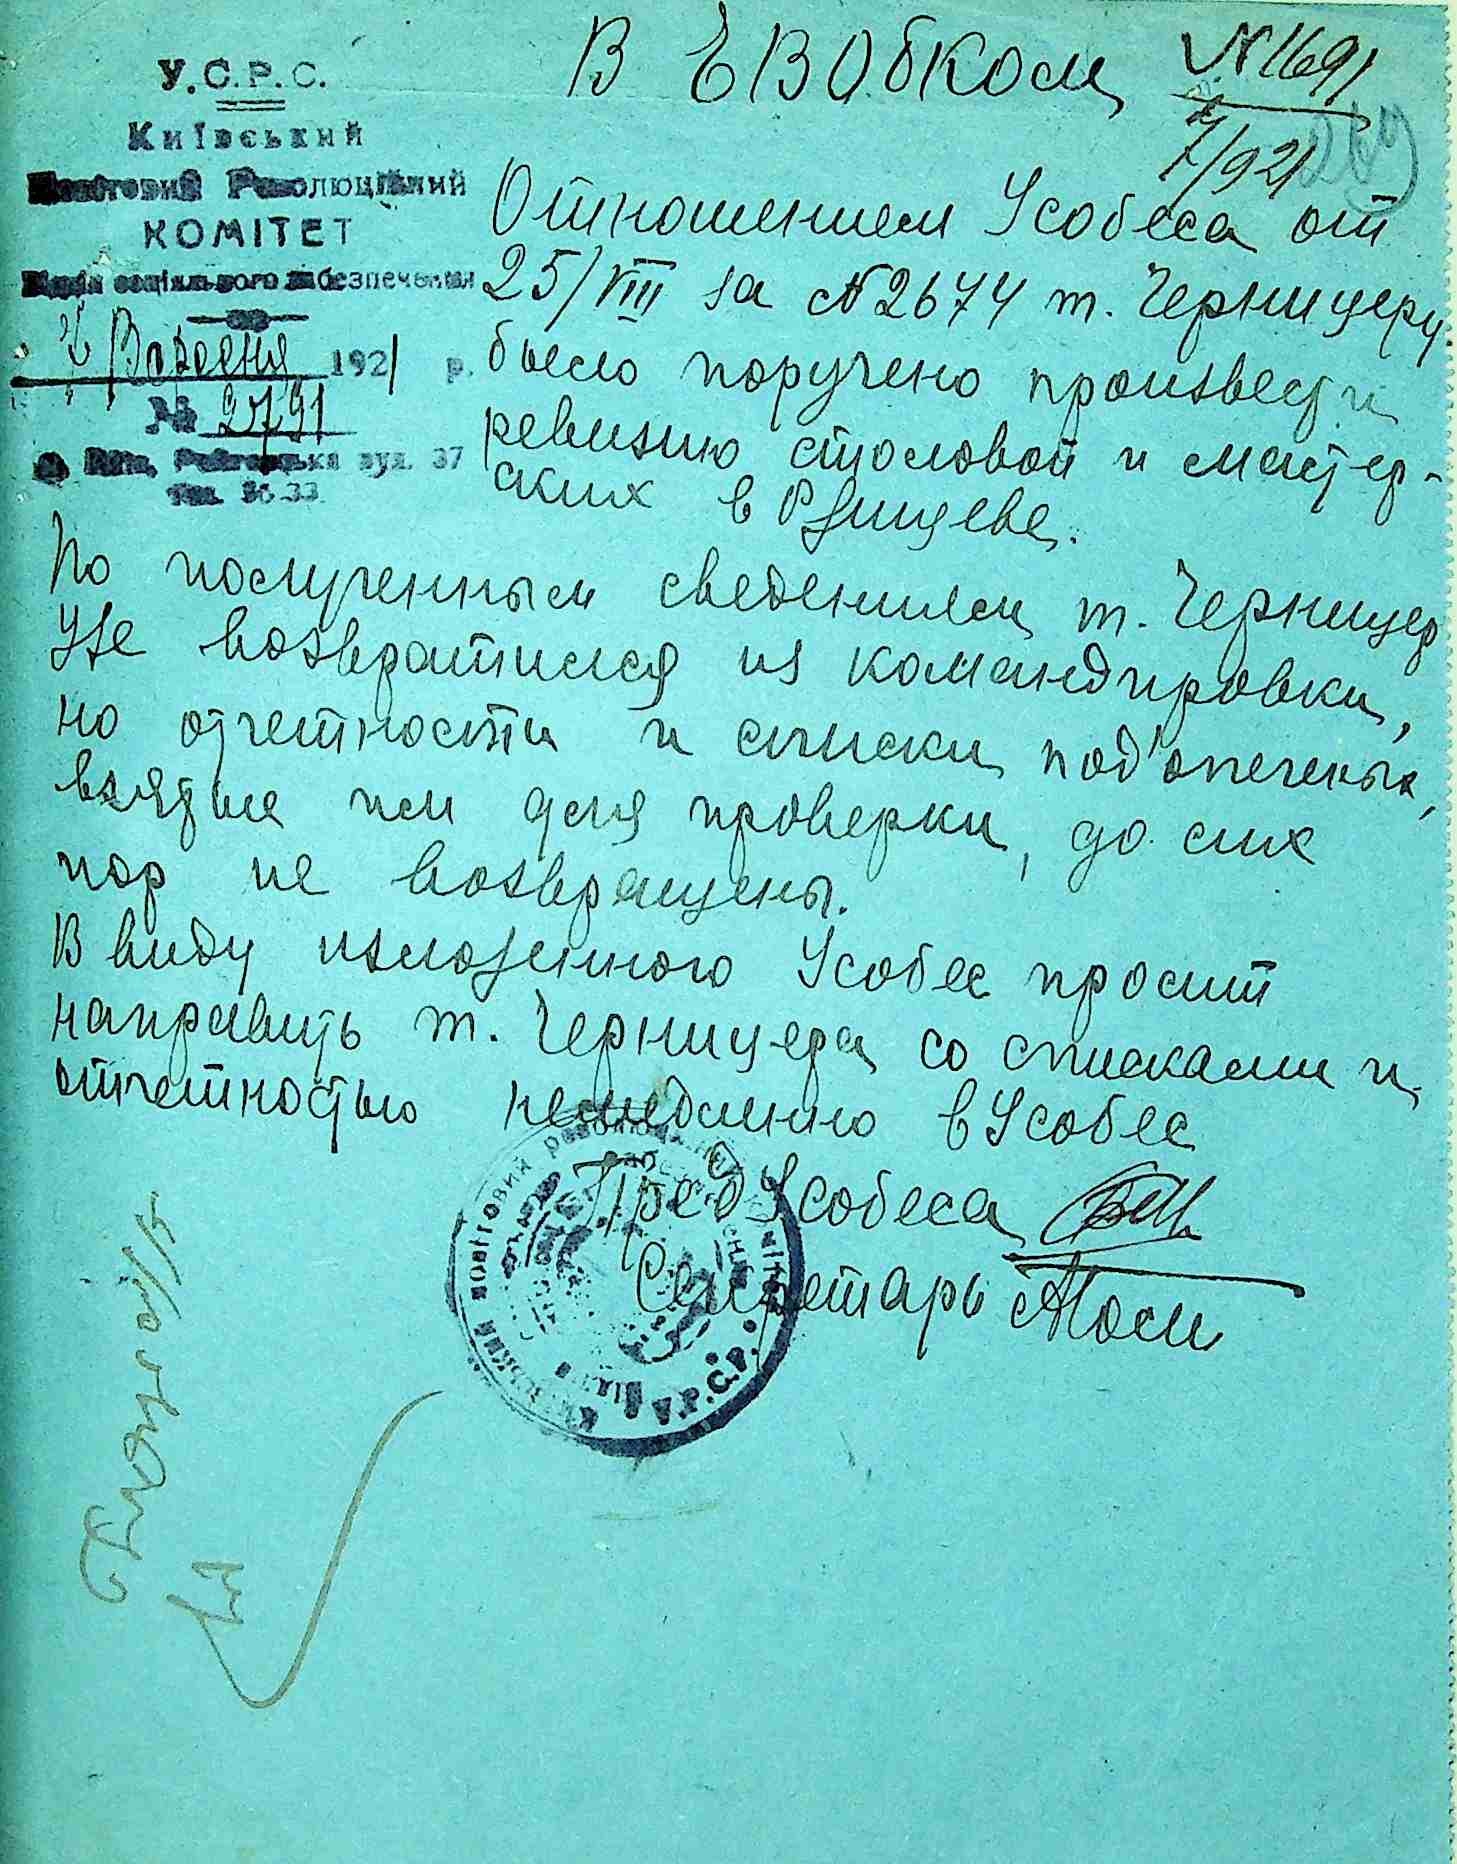 У.С.Р.С.
Київський
Повітовий Революційний
КОМІТЕТ
Відділ соціяльного забезпечення
7 Вересня 1921 р.
№ 2791
вул. 37
Тел. 36-33
В ЕВОбКом
№ 1691
7/921
267
Отношением Усобеса от
25/VIII за № 2674 т. Черницеру
было поручено произвести
ревизию столовой и мастер-
ских в Ржищеве.
По полученным сведениям т. Черницер
уже возвратился из командировки,
но отчетности и списки под'опечных,
взятые им для проверки, до сих
пор не возвращены.
В виду изложенного Усобес просит
направить т. Черницера со списками и
отчетностью немедленно в Усобес
ПредУсобеса
Секретарь
Київський повітовий революційний комітет
У.С.Р.С.